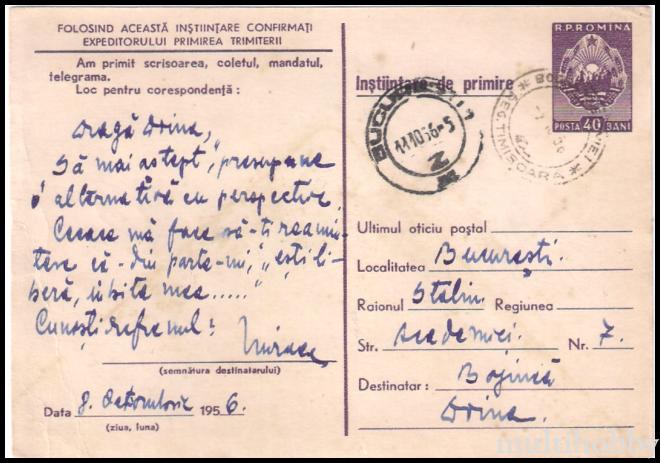 FOLOSIND ACEASTĂ INȘTIINȚARE CONFIRMAȚI
EXPEDITORULUI PRIMIREA TRIMITERII
Am primit scrisoarea, coletul, mandatul,
telegrama.
Loc pentru corespondență :
Dragă Drina,
Să mai aștept, "presupune
o alternativă cu perspective.
Ceeace mă face să-ți reamin-
tesc că - din parte-mi, "ești li-
beră, iubita mea....."
Cunoști refrenul!
Mircea
(semnătura destinatarului)
Data 8. Octombrie 1956.
(ziua, luna)
R.P.ROMINA
POSTA 40 BANI
Inștiințare de primire
11.10.56-5
REG. TIMISOARA
Ultimul oficiu poștal
Localitatea București.
Raionul Stalin Regiunea
Str. Academiei. Nr. 7.
Destinatar : Bojincă
Drina.
multihobby